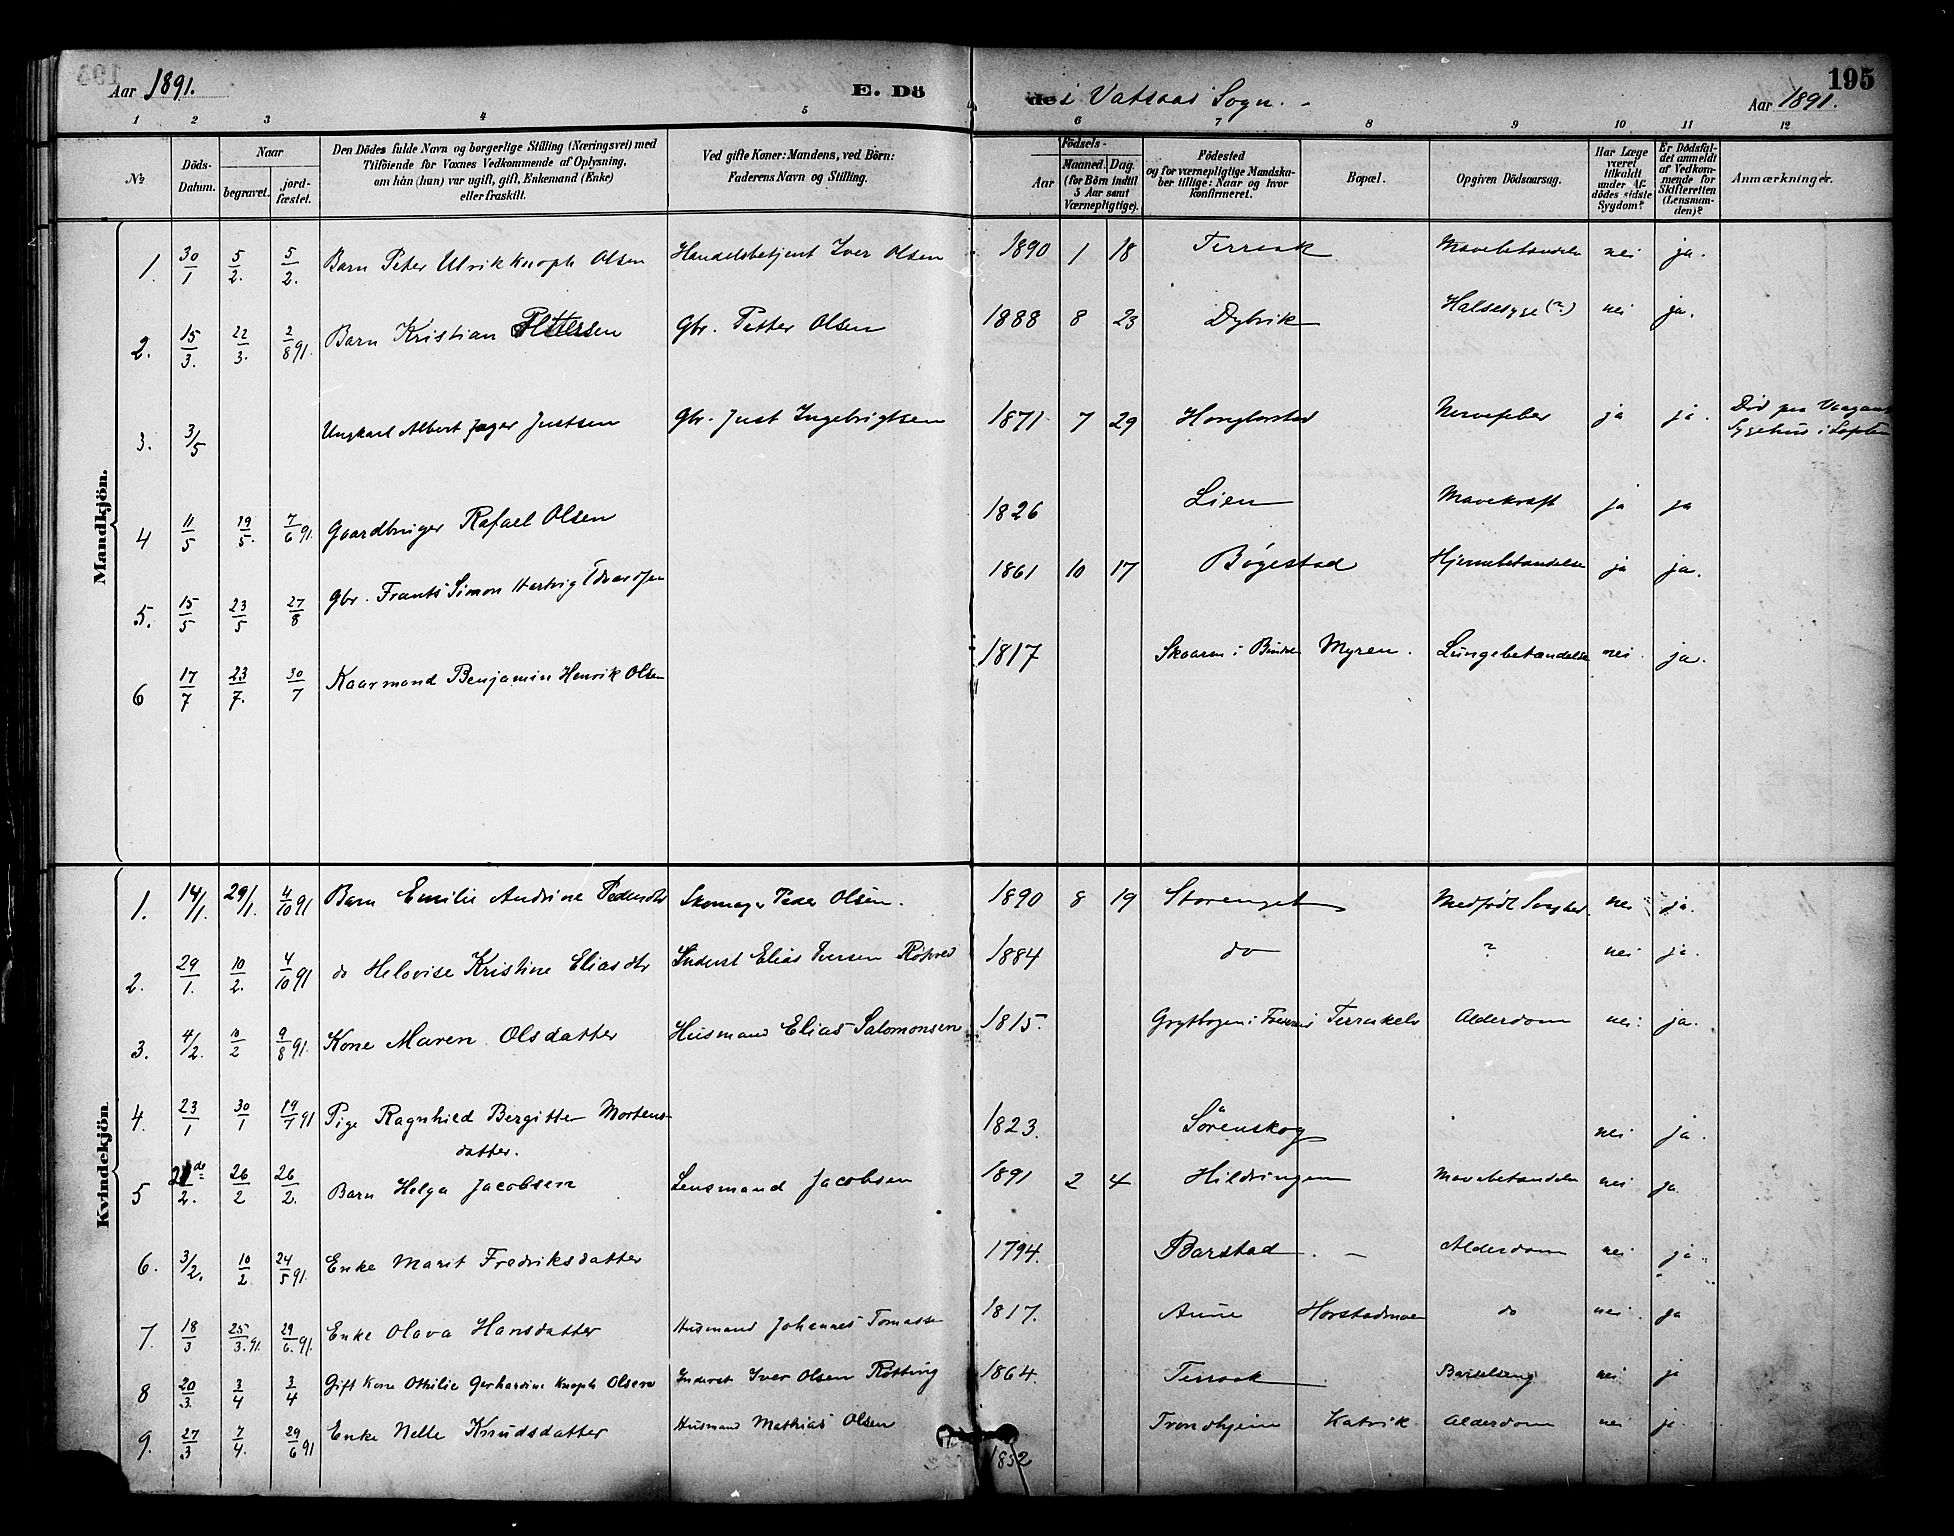 195
Aar 1891.
E. Döde i Vatsaas Sogn.
Aar 1891.
1 2 3 4 5 6 7 8 9 10 11 12
No
Döds-Datum.
Naar
begravet.
jordfæstet.
Den Dödes fulde Navn og borgerlige Stilling (Næringsvei) med
Tilföiende for Voxnes Vedkommende af Oplysning,
om hån (hun) var ugift, gift, Enkemand (Enke)
eller fraskilt.
Ved gifte Koner: Mandens, ved Börn:
Faderens Navn og Stilling.
Födsels-
Aar Maaned. Dag.
(for Börn indtil
5 Aar samt
Værnepligtige).
Födested
og for værnepligtige Mandska-
ber tillige: Naar og hvor
konfirmeret.
Bopæl.
Opgiven Dödsaarsag.
Har Læge
været
tilkaldt
under Af-
dödes sidste
Sygdom?
Er Dödsfal-
det anmeldt
af Vedkom-
mende for
Skifteretten
(Lensman-
den)?
Anmærkninger.
Mandkjön.
1. 30/1 5/2. 5/2. Barn Peter Ulrik Knoph Olsen Handelsbetjent Iver Olsen 1890 1 18 Terraak Mavebetændelse nei ja.
2. 15/3. 22/3. 2/8 91. Barn Kristian Pettersen Gbr. Petter Olsen 1888 8 23 Dybvik Halsesyge (?) nei ja.
3. 3/5 Ungkarl Albert Jager Justsen Gbr. Just Ingebrigtsen 1871 7 29 Horgborstad Nervefeber ja ja. Död paa Vaagans
Sygehus i Lofoten
4 11/5 19/5. 7/6 91. Gaardbruger Rafael Olsen 1826 Lien Mavekræft ja ja
5. 15/5 23/5 27/8 Gbr. Frants Simon Hartvig Edvardsen 1861 10 17 Bøgestad Hjernebetændelse ja ja.
6 17/7 23/7. 30/7 Kaarmand Benjamin Henrik Olsen 1817 Skaaren i Bindal Myren. Lungebetændelse nei. ja.
Kvindekjön
1. 14/1. 29/1. 4/10 91 Barn Emilie Andrine Pedersdtr Skomager Peder Olsen. 1890 8 19 Storenget Medfødt Svaghed nei ja.
2. 29/1. 10/2. 4/10 91 do Helovise Kristine Eliasdtr Inderst Elias Iversen 1884 do ? nei ja.
3. 4/2. 10/2 9/8 91. Kone Maren Olsdatter Husmand Elias Salomonsen 1815. Alderdom nei. ja.
4. 23/1 30/1 19/7 91 Pige Ragnhild Bergitte Mortens-
datter. 1823. Sörenskog nei ja.
5 21de/2. 26/2 26/2. Barn Helga Jacobsen Lensmand Jacobsen 1891 2 4 Hildringen Mavebetændelse nei ja
6. 3/2. 10/2 24/5 91. Enke Marit Fredriksdatter 1794. Barstad - Alderdom nei ja
7. 18/3 25/3. 91. 29/6. 91. Enke Olava Hansdatter Husmand Johannes Tomassen 1817. Aune Horstadmoen do nei. ja
8 20/3. 3/4 3/4 Gift Kone Othilie Gerhardine Knoph Olsen Inderst Iver Olsen Røtting 1864. Terraak Barselseng nei ja
9. 27/3 7/4. 29/6 91 Enke Nelle Knudsdatter Husmand Mathias Olsen 1852 Trondhjem Kalvik Alderdom nei ja.